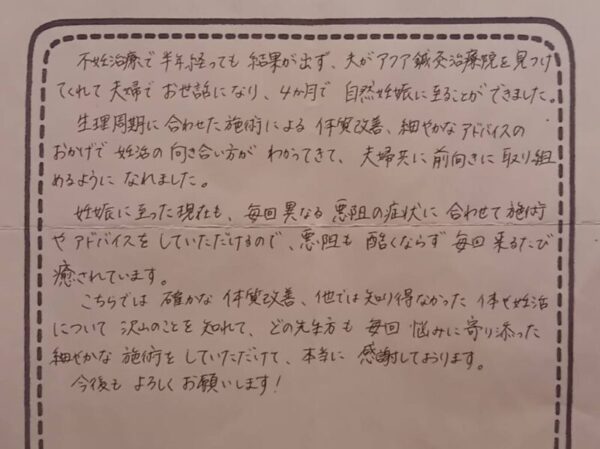 不妊治療で半年経っても結果が出ず、夫がアクア鍼灸治療院を見つけ
てくれて夫婦でお世話になり、4ヵ月で自然妊娠に至ることができました。
生理周期に合わせた施術による体質改善、細やかなアドバイスの
おかげで妊活の向き合い方がわかってきて、夫婦共に前向きに取り組
めるようになれました。
妊娠に至った現在も、毎回異なる悪阻の症状に合わせて施術
やアドバイスをしていただけるので、悪阻も酷くならず毎回来るたび
癒されています。
こちらでは確かな体質改善、他では知り得なかった体や妊活
について沢山のことを知れて、どの先生方も毎回悩みに寄り添った
細やかな施術をしていただけて、本当に感謝しております。
今後もよろしくお願いします!